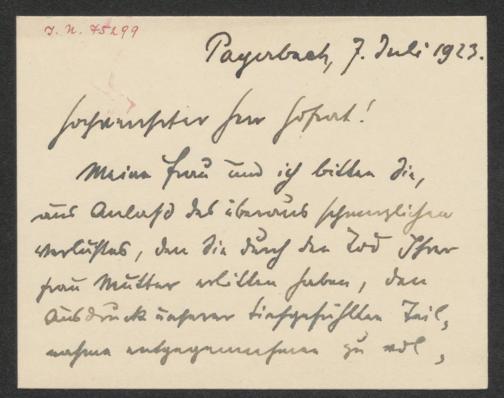 J. N. 75299
Payerbach, 7. Juli 1923.
Hochverehrter Herr Hofrat!
Meine Frau und ich bitten Sie,
aus Anlaß des überaus schmerzlichen
Verlustes, den Sie durch den Tod Ihrer
Frau Mutter erlitten haben, den
Ausdruck unserer tiefgefühlten Teil-
nahme entgegennehmen zu wol-